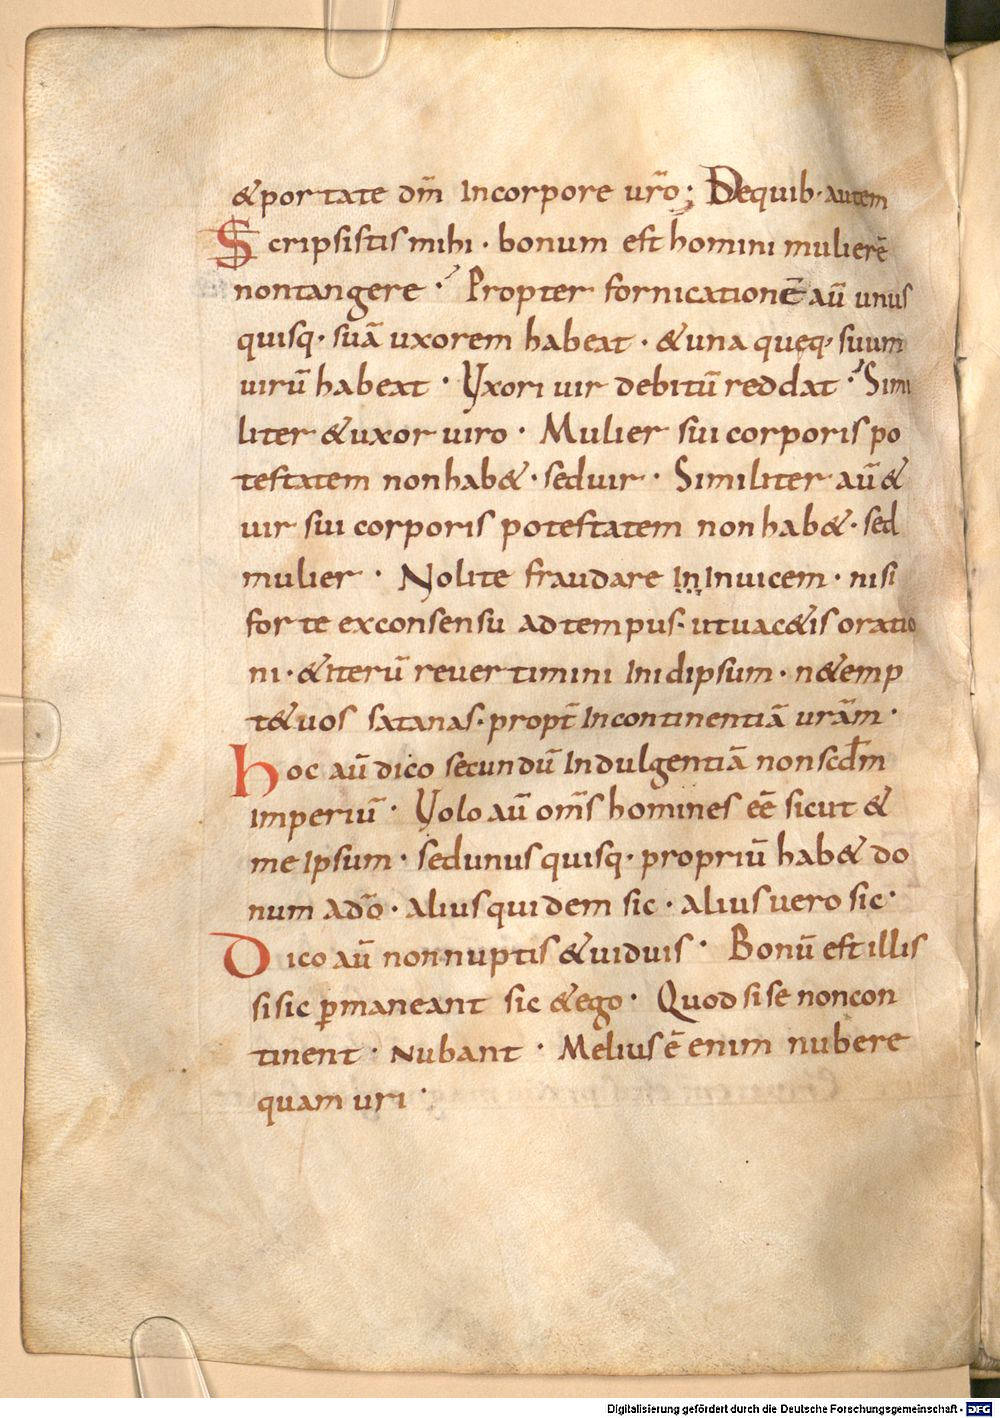 &portate dm̄ Incorpore ur̄o; Dequib· autem
Scripsistis mihi · bonum est homini mulierē
nontangere · Propter fornicationē aū unus
quisq· suā uxorem habeat · &una queq· suum
uirū habeat · Vxori uir debitū reddat · Simi
liter &uxor uiro · Mulier sui corporis po
testatem nonhab& · seduir · Similiter aū &
uir sui corporis potestatem non hab& · sed
mulier · Nolite fraudare InInuicem · nisi
forte exconsensu adtempus · utuac&is oratio
ni · &iterū reuertimini Inidipsum · n&emp
t&uos satanas · propt̄ Incontinentiā ur̄am ·
hoc aū dico secundū Indulgentiā nonscd̄m
Imperiū · Volo aū om̄s homines eē sicut &
me Ipsum · sedunus quisq· propriū hab& do
num ad̄o · alius quidem sic · alius uero sic ·
Dico aū non nuptis &uiduis · Bonū est illis
sisic p̄maneant sic &ego · Quod sise noncon
tinent · Nubant · Melius ē enim nubere
quam uri ·
Digitalisierung gefördert durch die Deutsche Forschungsgemeinschaft - DFG